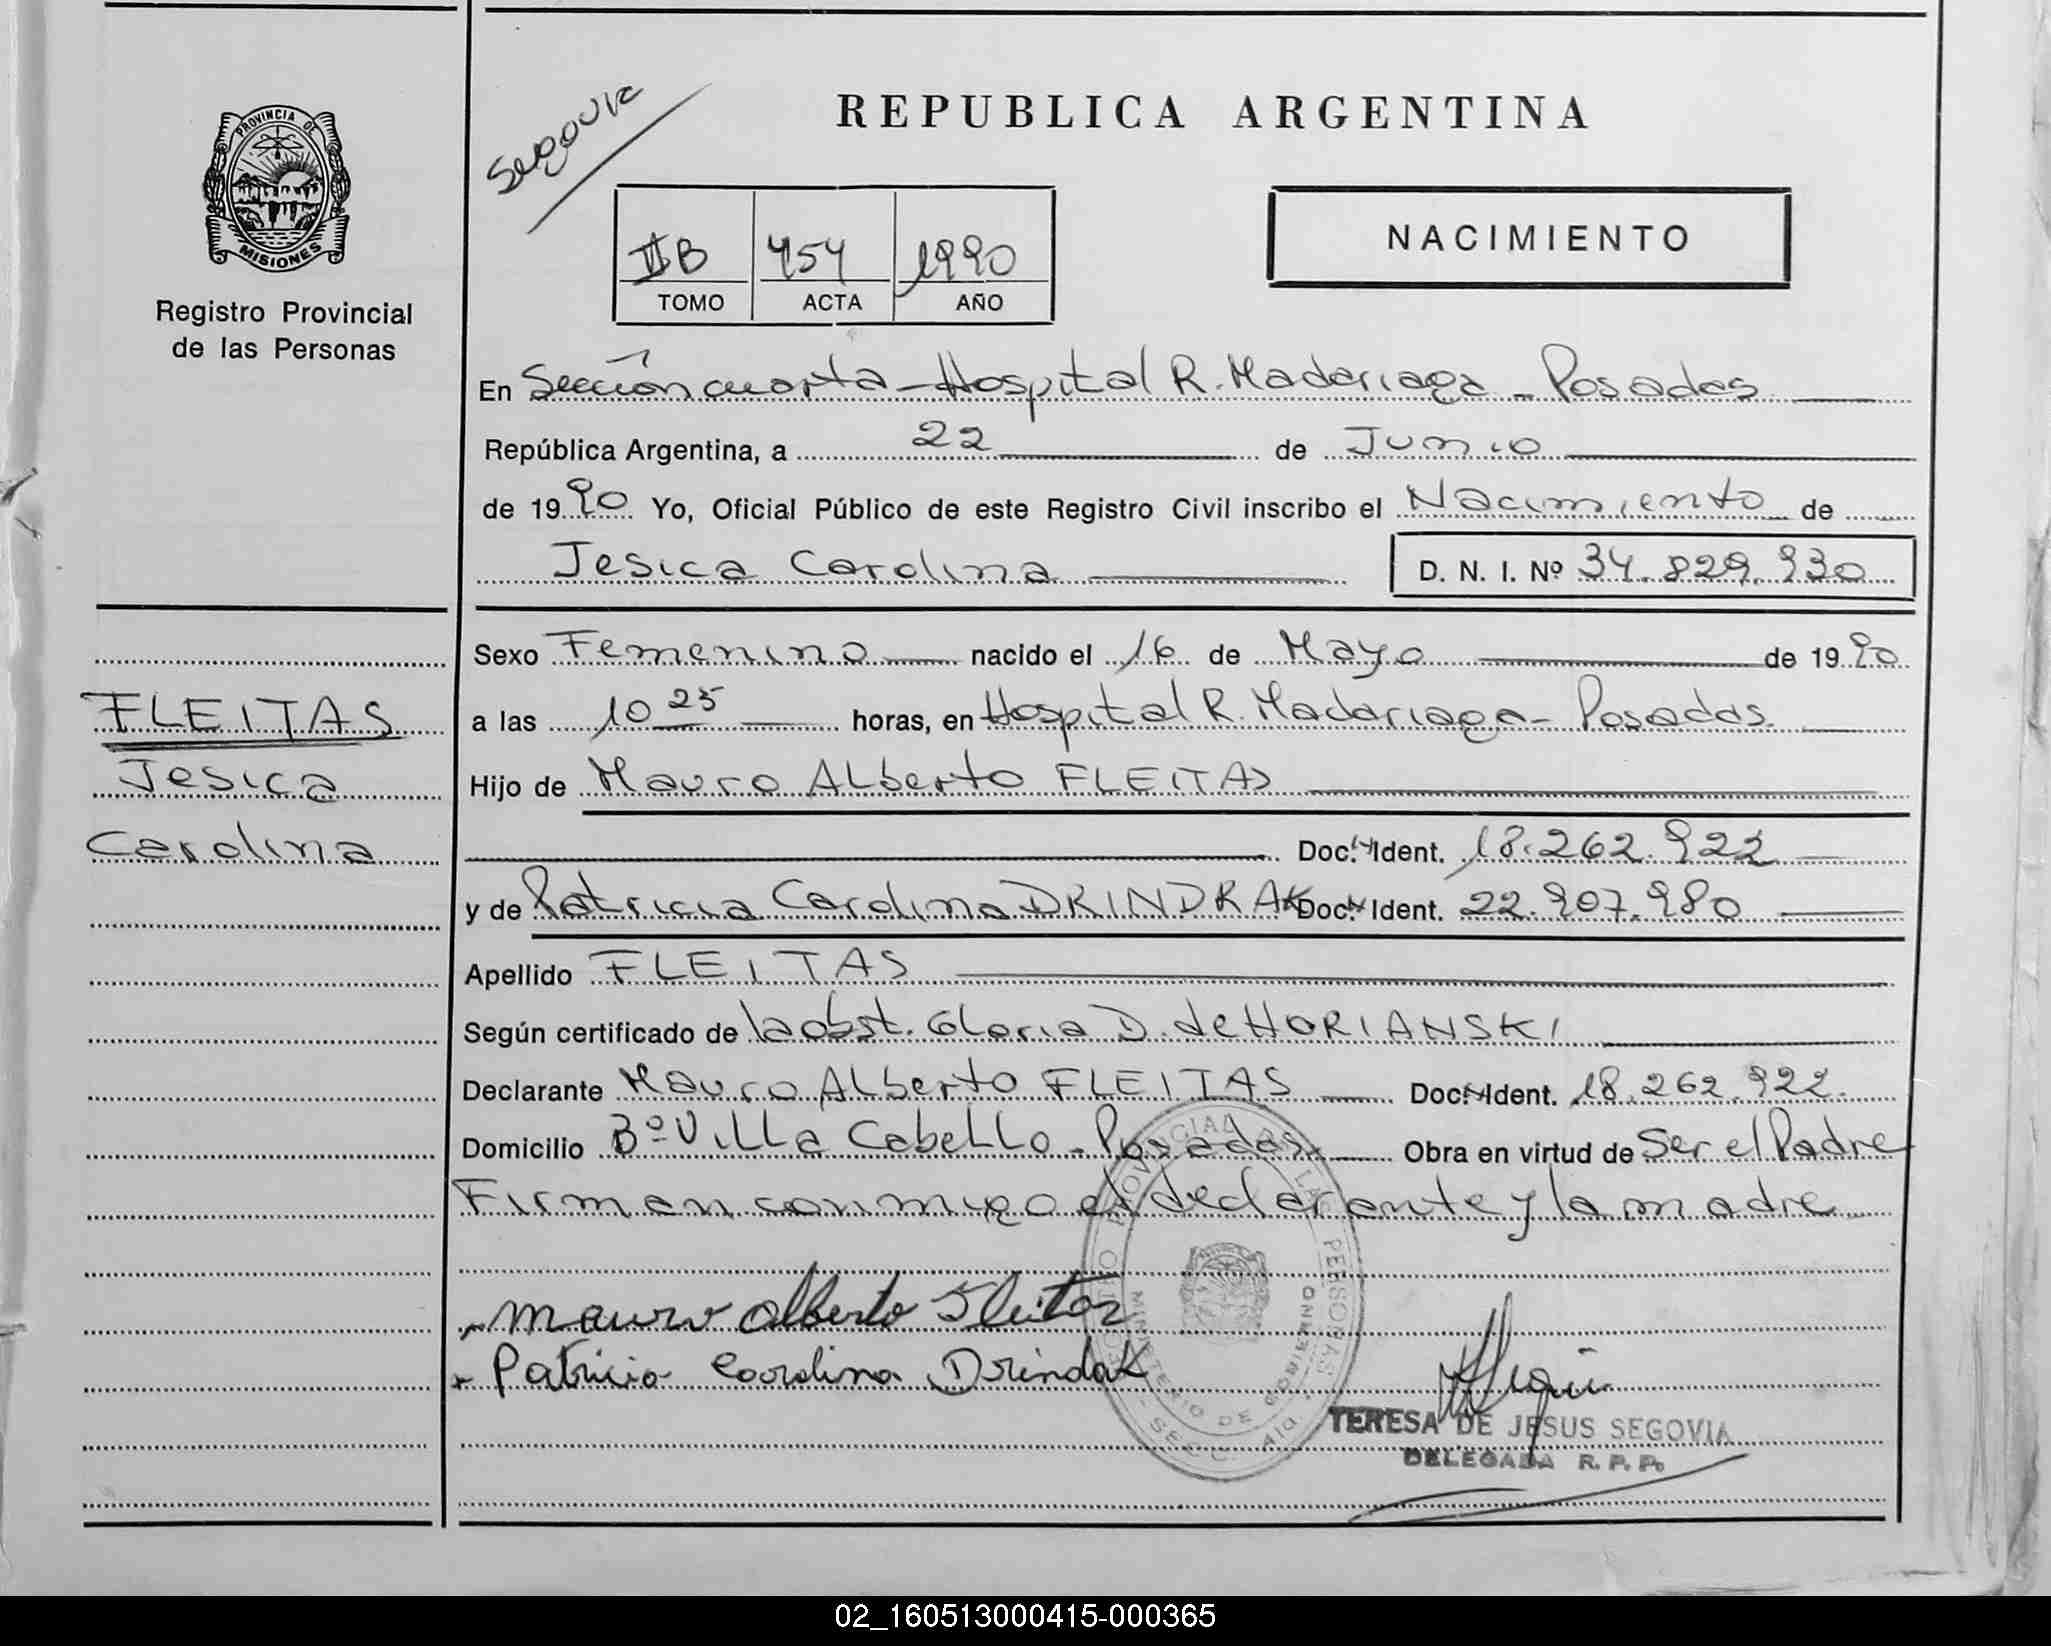 PROVINCIA DE
MISIONES
Registro Provincial
de las Personas
FLEITAS
Jesica
Carolina
Segovia
REPUBLICA ARGENTINA
II B 454 1990
TOMO ACTA AÑO
NACIMIENTO
En Sección cuarta - Hospital R. Madariaga - Posadas
República Argentina, a 22 de Junio
de 1990 Yo, Oficial Público de este Registro Civil inscribo el Nacimiento de
Jesica Carolina D. N. I. Nº 34.829.930
Sexo Femenino nacido el 16 de Mayo de 1990
a las 10 25 horas, en Hospital R. Madariaga - Posadas
Hijo de Mauro Alberto FLEITAS
Doc. Ident. 18.262.922
y de Patricia Carolina DRINDRAK Doc. Ident. 22.907.980
Apellido FLEITAS
Según certificado de la obst. Gloria D. de HORIANSKI
Declarante Mauro Alberto FLEITAS Doc. Ident. 18.262.922
Domicilio Bº Villa Cabello - Posadas Obra en virtud de Ser el Padre
Firman conmigo el declarante y la madre
Mauro Alberto Fleitas
Patricia Carolina Drindak
TERESA DE JESUS SEGOVIA
DELEGADA R. P. P.
02_160513000415-000365